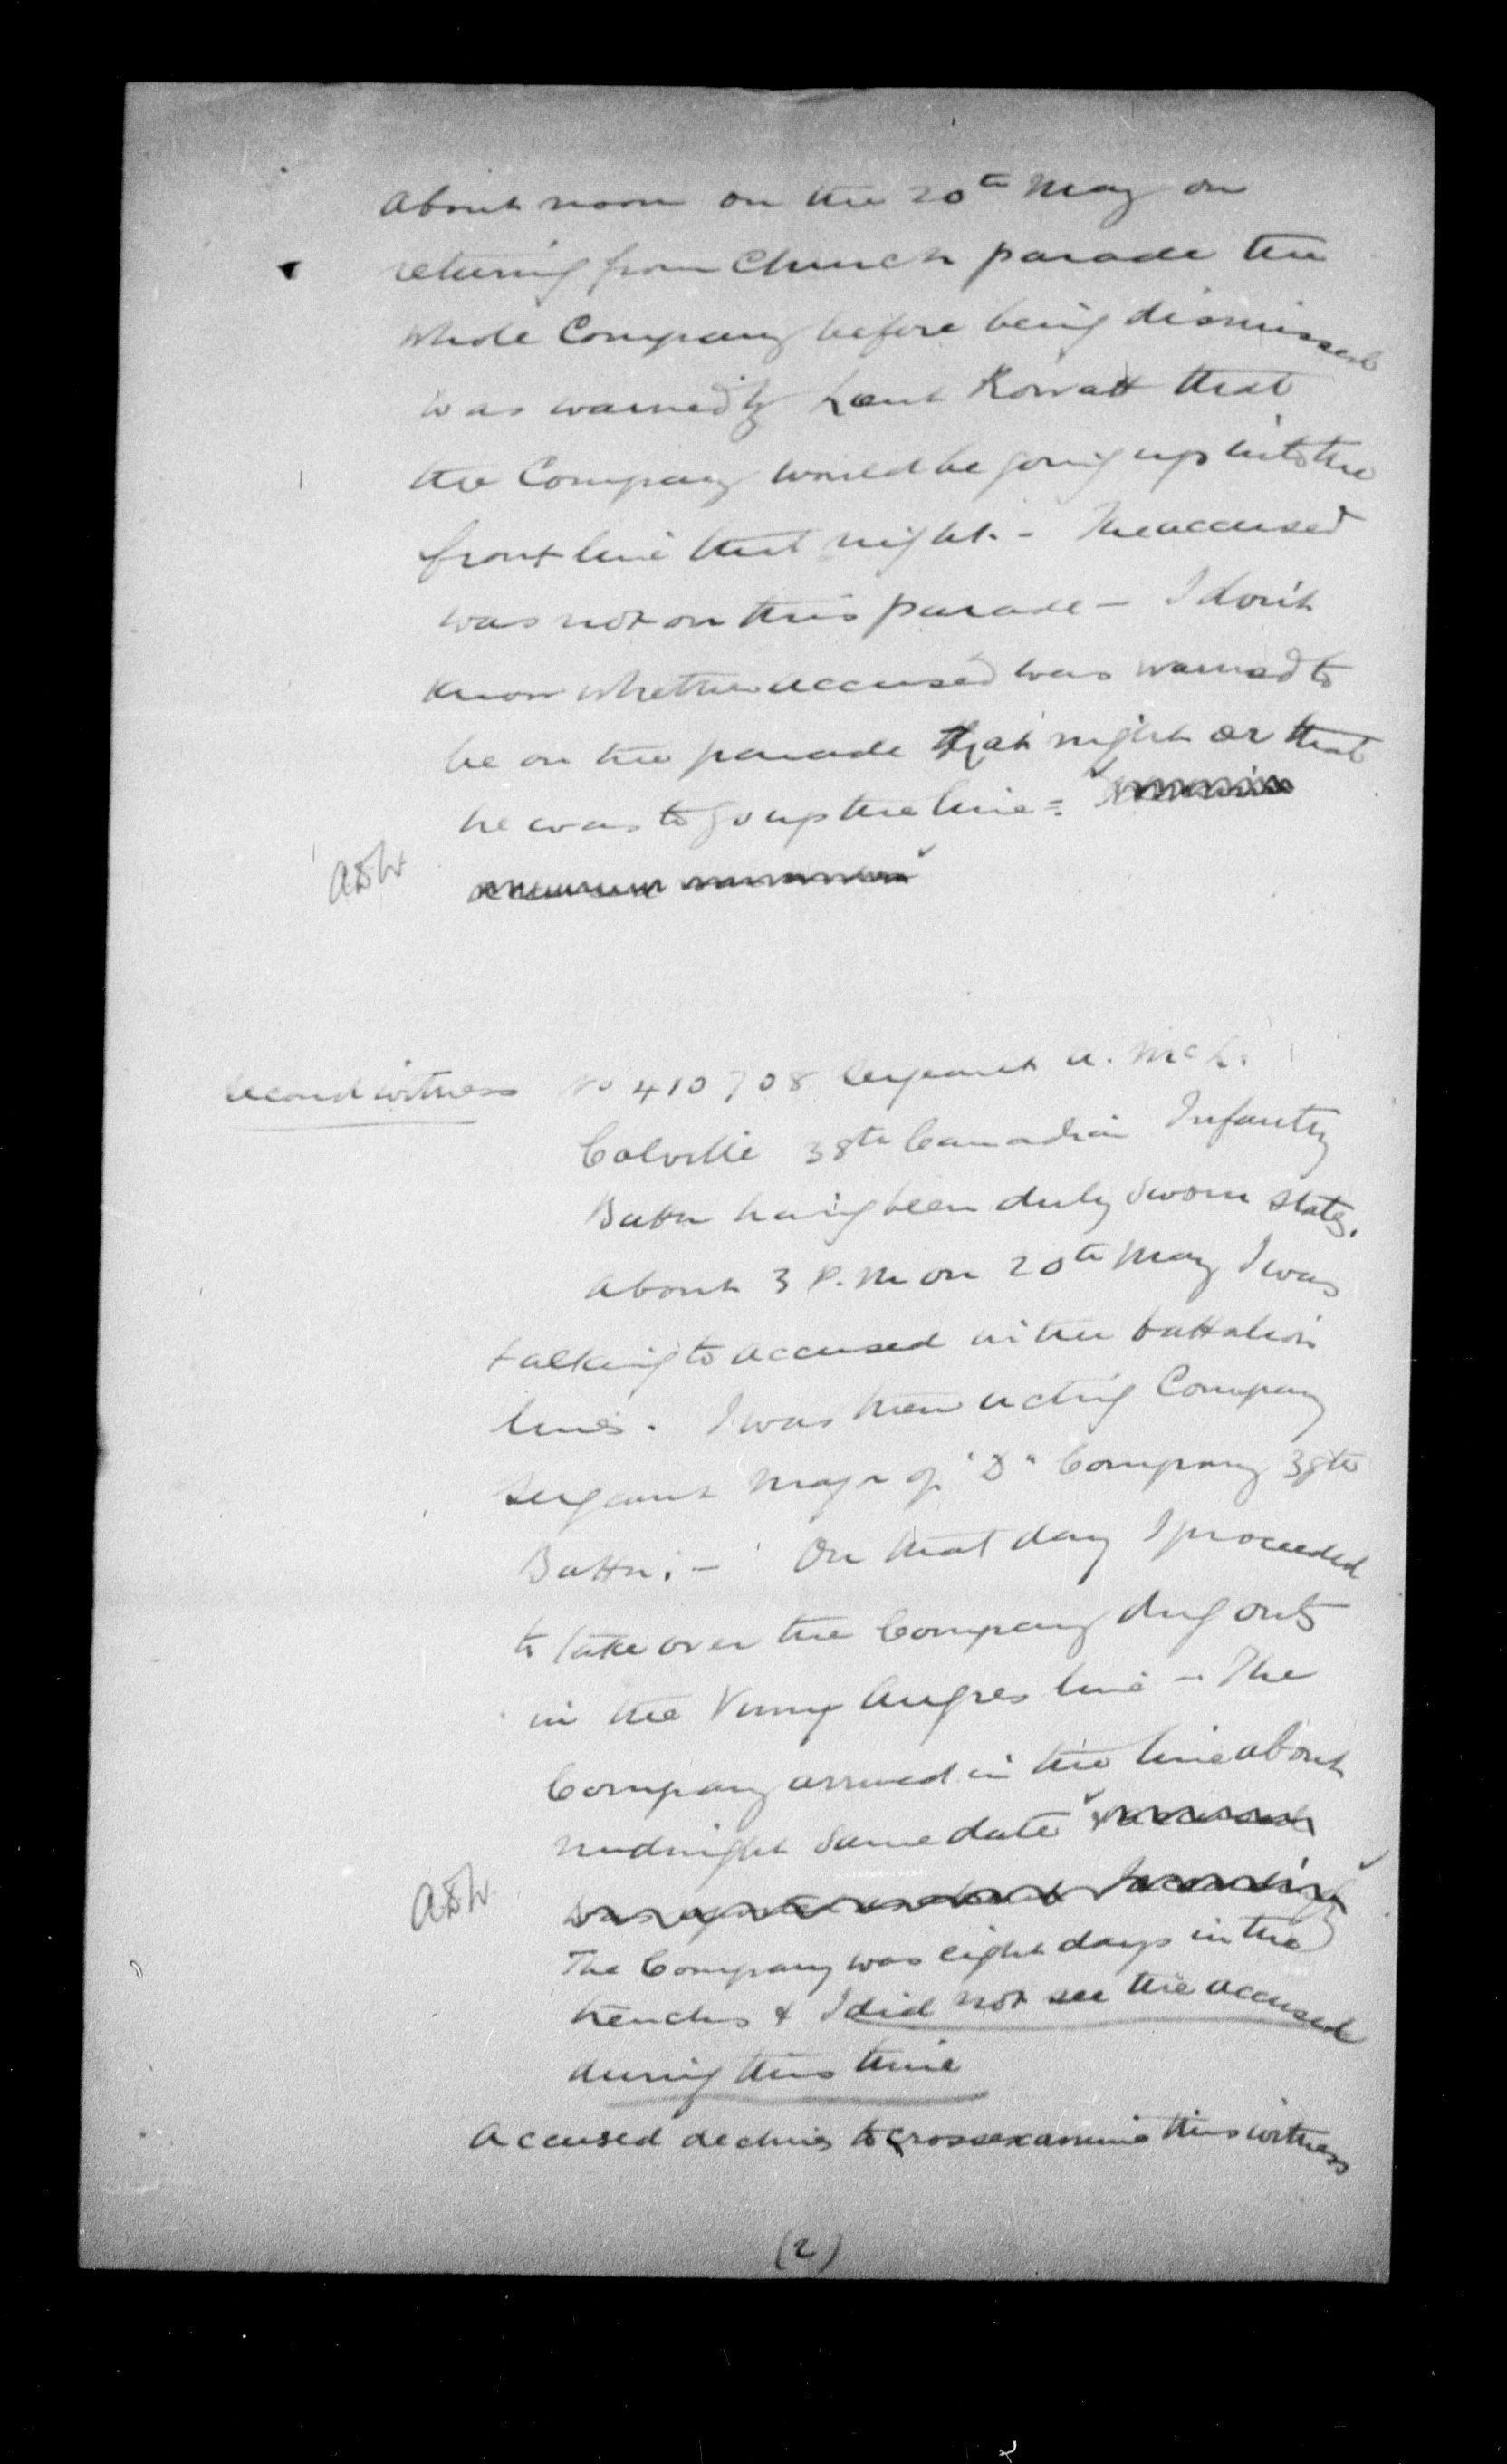 About noon on the 20th May on
returning from Church parade the
whole Company before being dismissed
was warned by Lieut Rowatt that
the Company would be going up into the
front line that night. - The accused
was not on this parade - I don't
know whether accused was warned to
be on the parade that night or that
he was to go up the line =
ASW
Second witness No 410708 Sergeant A. McL.
Colville 38th Canadian Infantry
Battn having been duly sworn states.
About 3 P.M on 20th May I was
talking to accused in the battalion
lines. I was then acting Company
Sergeant Major of "D" Company 38th
Battn: - On that day I proceeded
to take over the Company dug outs
in the Vimy Angres line - The
Company arrived in the line about
midnight same date
ASW
The Company was eight days in the
trenches & I did not see the accused
during this time
Accused declines to cross examine this witness
(2)